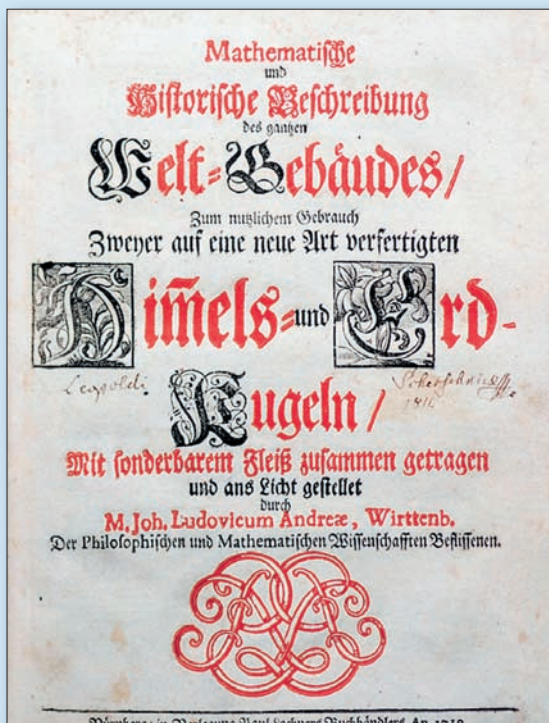 Mathematische
und
Historische Beschreibung
des gantzen
Welt-Gebäudes/
Zum nutzlichem Gebrauch
Zweyer auf eine neue Art verfertigten
Him̄els- und Erd-
Kugeln/
Leopoldi
1811
Mit sonderbarem Fleiß zusammen getragen
und ans Licht gestellet
durch
M. Joh. Ludovicum Andreæ, Wirttenb.
Der Philosophischen und Mathematischen Wissenschafften Beflissenen.
Nürnberg, in Verlegung Paul Lochners Buchhändlers. An. 1718.